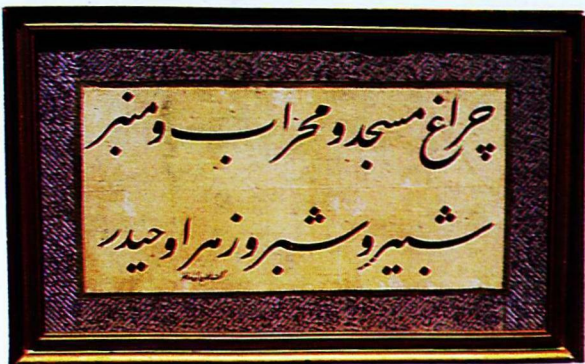 چراغ مسجد و محراب و منبر
شبیر و شبر و زهرا و حیدر